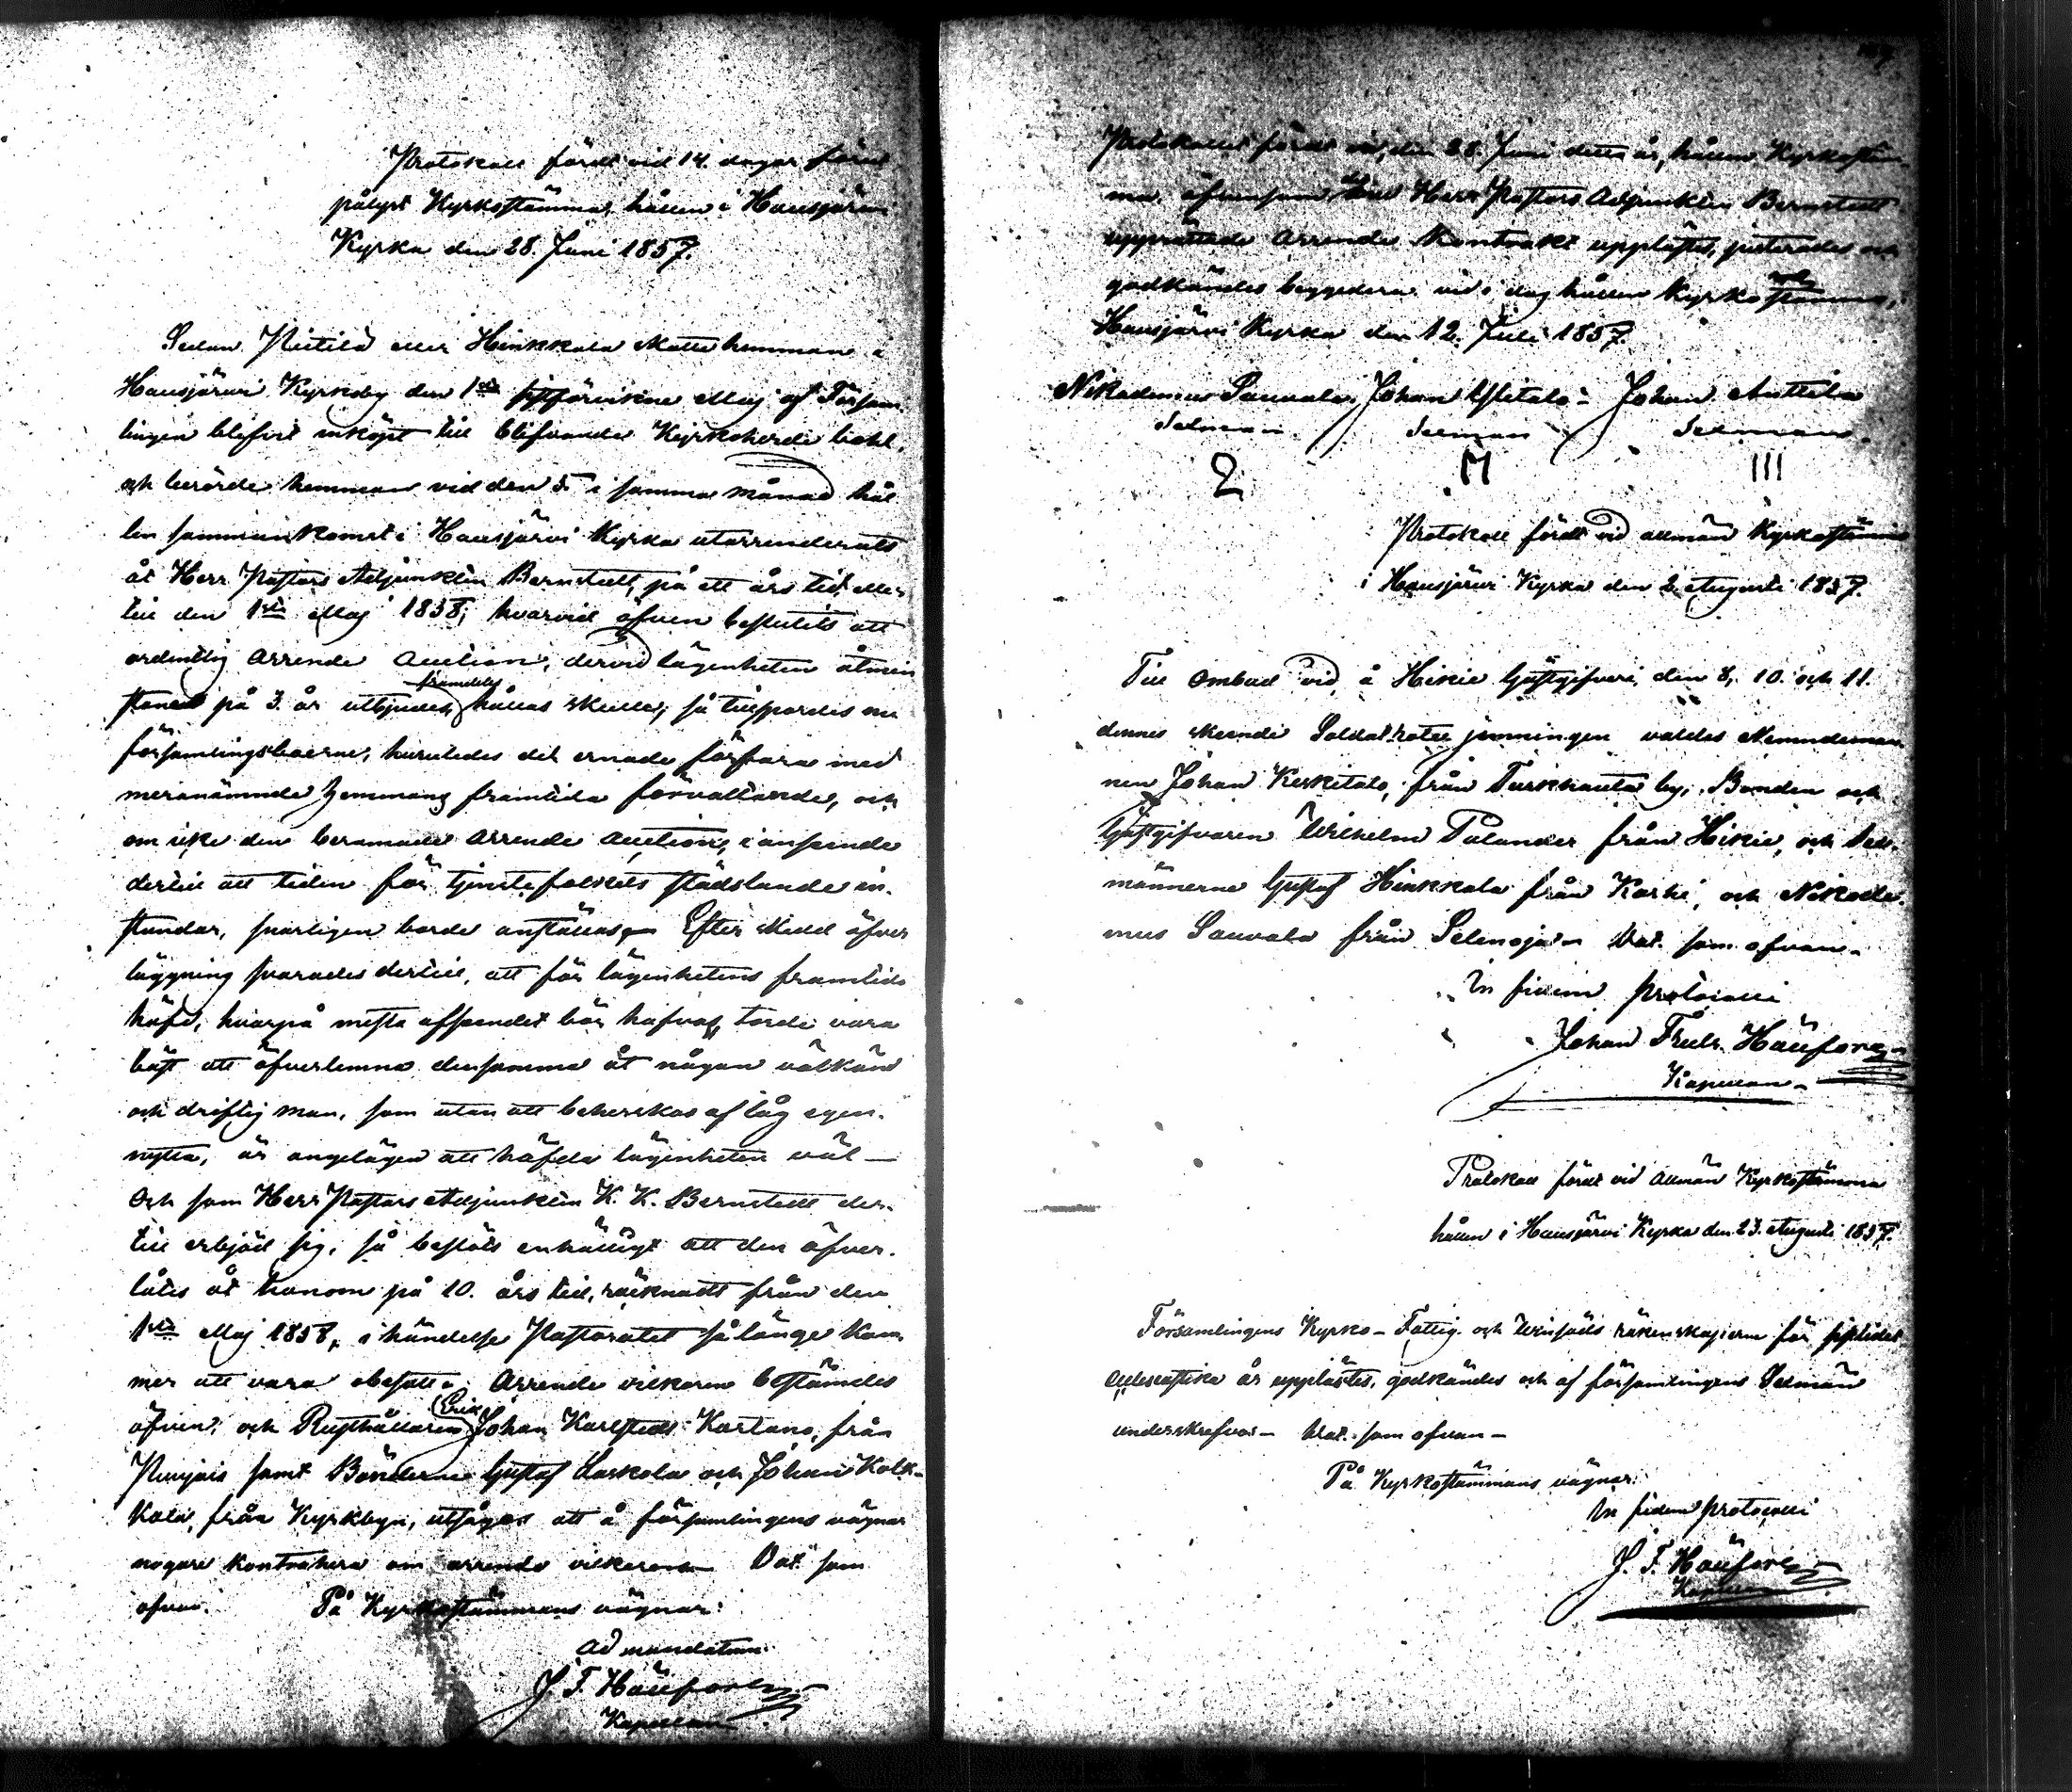 Protokoll fördt vid 14. dagar förut
pålyst Kyrkostämma, hållen i Hausjärvi
Kyrka den 28. Juni 1857.
Sedan Pietilä eller Hinkkala Skatte hemman i
Hausjärvi Kyrkoby den 1sta sistförvikne Maj af Försam
lingen blifvit inköpt till blifvande Kyrkoherde bohl,
och berörde hemman vid den 5. i samma månad hål
len sammankomst i Hausjärvi Kyrka utarrenderats
åt Herr Pastors Adjunkten Bernstedt, på ett års tid eller
till den 1sta Maj 1858; hvarvid äfven beslutits att
ordentlig Arrende Auction, dervid lägenheten åtmin
stone på 3. år utbjudes, framdeles hållas skulle; så tillspordes nu
församlingsboerne, huruledes det ernade förfara med
meranämnde hemmans framtida förvaltande, och
om icke den beramade Arrende Auction, i anseende
dertill att tiden för tjenstefolkets städslande in-
stundar, snarligen borde anställas. Efter skedd öfver
läggning svarades dertill, att för lägenhetens framtida
häfd, hvarpå mesta afseendet bör hafvas, torde vara
bäst att öfverlemna densamma åt någon välkänd
och driftig man, som utan att beherrskas af låg egen-
nytta, är angelägen att häfda lägenheten väl –
Och som Herr Pastors Adjunkten K. K. Bernstedt der-
till erbjöd sig, så beslöts enhälligt att den öfver-
låtes åt honom på 10. års tid, räknadt från den
1sta Maj 1858, i händelse Pastoratet så länge kom
mer att vara obesatt. Arrende vilkoren bestämdes
äfven, och Rusthållaren Erik Johan Karlstedt Kartano, från
Punjois samt Bönderne Gustaf Laskola och Johan Kolk-
kala, från Kyrkbyn, utsågos att å församlingens vägnar
nogare kontrahera om arrende vilkoren – Dat. som
ofvan. På Kyrkostämmans vägnar:
ad mandatum
J. F. Häufors
Kapellan
Protokollet fördt vid, den 28. Juni detta år, hållen Kyrkostäm
ma, äfvensom det med Herr Pastors Adjunkten Bernstedt
upprättade Arrende Kontrakt upplästes, justerades och
godkändes beggedera vid i dag hållen Kyrkostämma,
Hausjärvi Kyrka den 12. Juli 1857.
Nikodemus Sauvala, Johan Ylitalo – Johan Anttila
Sexman Sexman Sexman
2 M III
Protokoll fördt vid allmän Kyrkostämma
i Hausjärvi Kyrka den 2. Augusti 1857.
Till Ombud vid, å Hikie Gästgifveri, den 8, 10. och 11.
dennes skeende Soldat rote jemningen valdes Nemndeman
nen Johan Keskitalo, från Turkhauta by, Bonden och
Gästgifvaren Wilhelm Palander från Hikie, och Sex-
männerne Gustaf Hinkkala från Karhi, och Nikode-
mus Sauvala från Selenoja – Dat. som ofvan –
In fidem protocolli
Johan Fredr. Häufors
Kapellan –
Protokoll fördt vid Allmän Kyrkostämma
hållen i Hausjärvi Kyrka den 23. Augusti 1857.
Församlingens Kyrko- Fattig- och räkenskaperne för sistlidet
ecclesiastika år upplästes, godkändes och af församlingens Sexmän
underskrefvos – Dat. som ofvan –
På Kyrkostämmans vägnar:
In fidem protocolli
J. F. Häufors
Kapellan